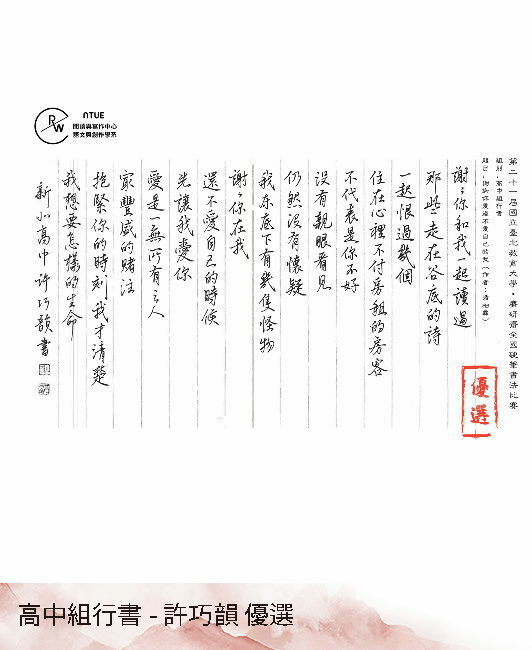 NTUE
RW
閱讀與寫作中心
語文與創作學系
第二十一屆國立臺北教育大學‧賡研齋全國硬筆書法比賽
組別：高中組行書
題目：謝謝你愛這不愛自己的我
謝謝你和我一起讀過
那些走在谷底的詩
一起恨過幾個
住在心裡不付房租的房客
不代表是你不好
沒有親眼看見
仍然沒有懷疑
我床底下有幾隻怪物
謝謝你在我
還不愛自己的時候
先讓我愛你
愛是一無所有之人
最豐盛的賭注
抱緊你的時刻我才清楚
我想要怎樣的生命
新北高中許巧韻書
優選
高中組行書 - 許巧韻 優選